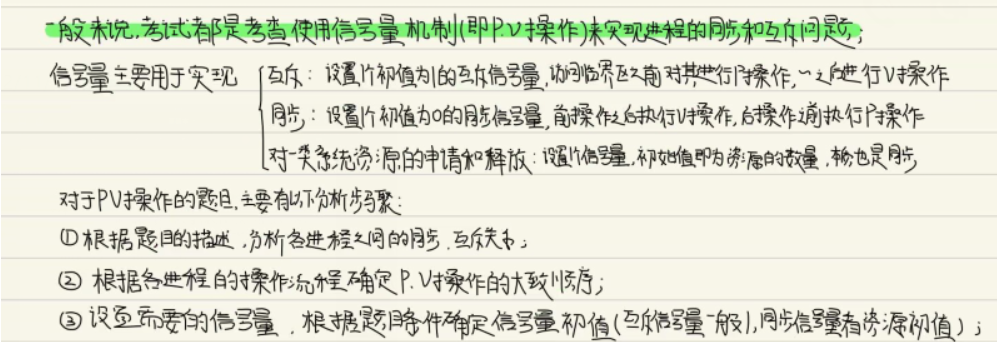 一般来说,考试都是考查使用信号量机制(即P.V操作)来实现进程的同步和互斥问题;
信号量主要用于实现
互斥:设置1个初值为1的互斥信号量,访问临界区之前对其进行P操作,~之后进行V操作
同步:设置1个初值为0的同步信号量,前操作之后执行V操作,后操作之前执行P操作
对一类系统资源的申请和释放:设置1个信号量,初始值即为资源的数量,本质也是同步
对于PV操作的题目,主要有以下分析步骤:
① 根据题目的描述,分析各进程之间的同步.互斥关系;
② 根据各进程的操作流程确定P.V操作的大致顺序;
③ 设置需要的信号量,根据题目条件确定信号量初值(互斥信号量一般1,同步信号量看资源初值);